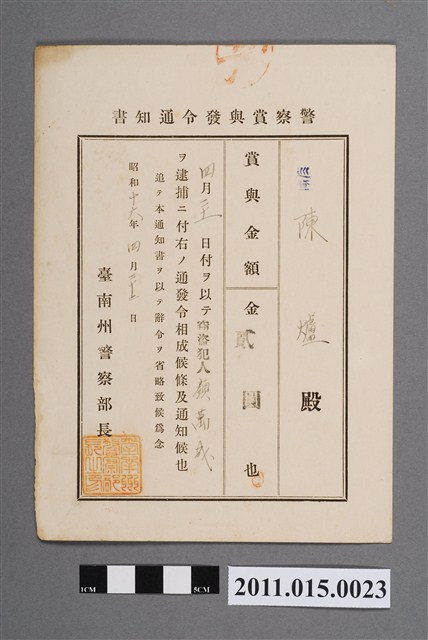 警察賞與發令通知書
巡查 陳 爐 殿
賞與金額 金貳圓也
四月 日付ヲ以テ窃盜犯人
ヲ逮捕ニ付右ノ通發令相成候條及通知候也
追テ本通知書ヲ以テ辭令ヲ省略致候爲念
昭和十六年四月 日
臺南州警察部長
1CM
5CM
2011.015.0023